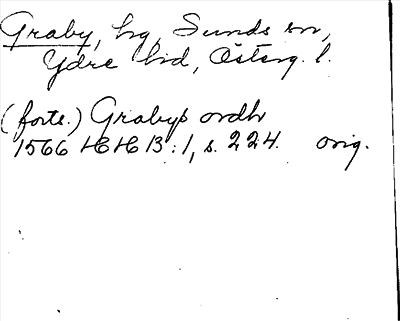 Graby, hg, Sunds sn,
Ydre hd, Österg. l.
(forts.) Grabyp ordh
1566 HH B:1, s. 224. orig.